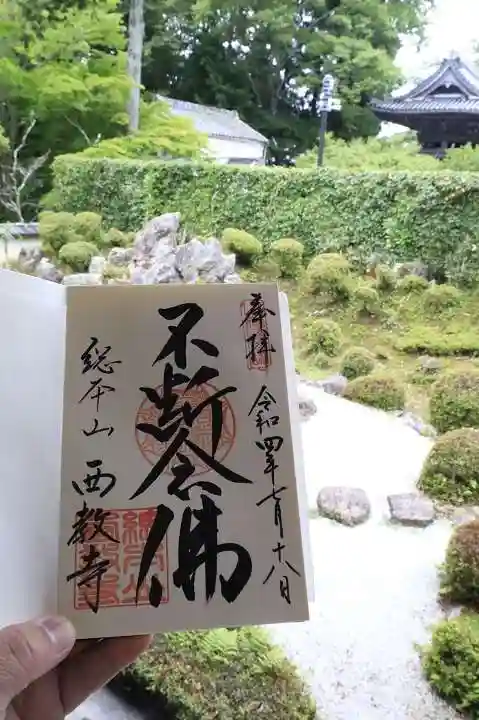 奉拝
令和四年七月十八日
不断念佛
総本山 西教寺